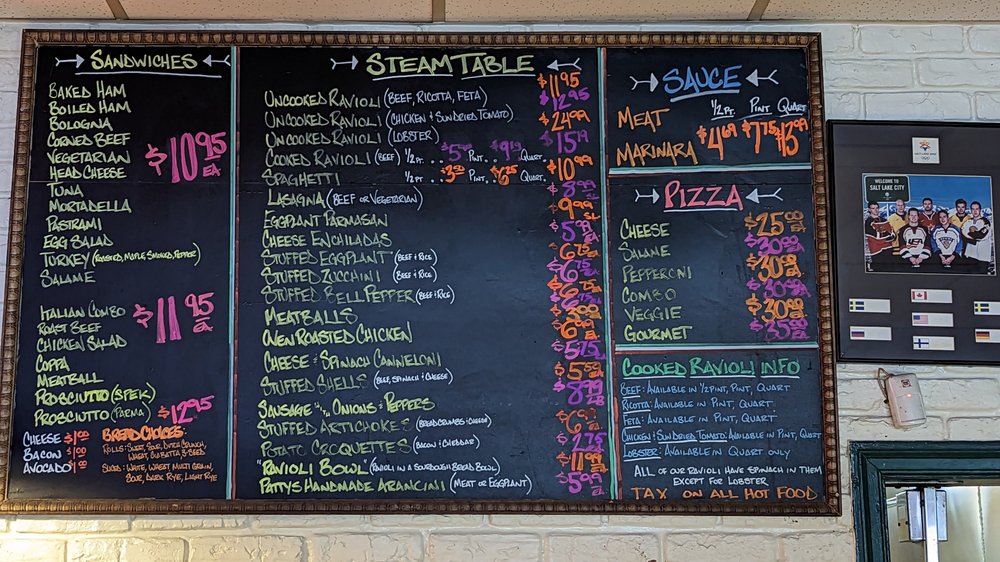 SANDWICHES
BAKED HAM
BOILED HAM
BOLOGNA
CORNED BEEF
VEGETARIAN
HEAD CHEESE
TUNA
MORTADELLA
PASTRAMI
EGG SALAD
TURKEY (ROASTED, MAPLE SMOKED, PEPPER)
SALAME
$10.95 EA
ITALIAN COMBO
ROAST BEEF
CHICKEN SALAD
COPPA
MEATBALL
PROSCIUTTO (SPEK)
$11.95 EA
PROSCIUTTO (PARMA) $12.95
CHEESE $1.00
BACON
AVOCADO
BREAD CHOICES
ROLLS: SWEET, SOUR, DUTCH CRUNCH,
WHEAT, CIABATTA, 3-SEED
SLICED: WHITE, WHEAT, MULTI GRAIN,
SOUR, DARK RYE, LIGHT RYE
STEAM TABLE
UNCOOKED RAVIOLI (BEEF, RICOTTA, FETA) $11.95
UNCOOKED RAVIOLI (CHICKEN & SUN DRIED TOMATO) $12.95
UNCOOKED RAVIOLI (LOBSTER) $24.99
COOKED RAVIOLI (BEEF) 1/2 PT. PINT. $9.19 QUART. $15.19
SPAGHETTI 1/2 PT. PINT. $6.25 QUART. $10.99
LASAGNA (BEEF OR VEGETARIAN)
EGGPLANT PARMASAN
CHEESE ENCHILADAS
STUFFED EGGPLANT (BEEF & RICE)
STUFFED ZUCCHINI (BEEF & RICE)
STUFFED BELL PEPPER (BEEF & RICE)
MEATBALLS
OVEN ROASTED CHICKEN
CHEESE & SPINACH CANNELONI
STUFFED SHELLS (BEEF, SPINACH & CHEESE)
SAUSAGE WITH ONIONS & PEPPERS
STUFFED ARTICHOKE (BREADCRUMBS & CHEESE)
POTATO CROQUETTES (BACON & CHEDDAR)
"RAVIOLI BOWL" (RAVIOLI IN A SOURDOUGH BREAD BOWL)
PATTYS HANDMADE ARANCINI (MEAT OR EGGPLANT) $5.99 EA
SAUCE
1/2 PT. PINT QUART
MEAT
MARINARA
$4.69 $7.75 $13.99
PIZZA
CHEESE $25.00 EA
SALAME $30.00 EA
PEPPERONI $30.00 EA
COMBO $30.00 EA
VEGGIE $30.00 EA
GOURMET $35.00 EA
COOKED RAVIOLI INFO
BEEF: AVAILABLE IN 1/2 PINT, PINT, QUART
RICOTTA: AVAILABLE IN PINT, QUART
FETA: AVAILABLE IN PINT, QUART
CHICKEN & SUN DRIED TOMATO: AVAILABLE IN PINT, QUART
LOBSTER: AVAILABLE IN QUART ONLY
ALL OF OUR RAVIOLI HAVE SPINACH IN THEM
EXCEPT FOR LOBSTER
TAX ON ALL HOT FOOD
WELCOME TO
SALT LAKE CITY